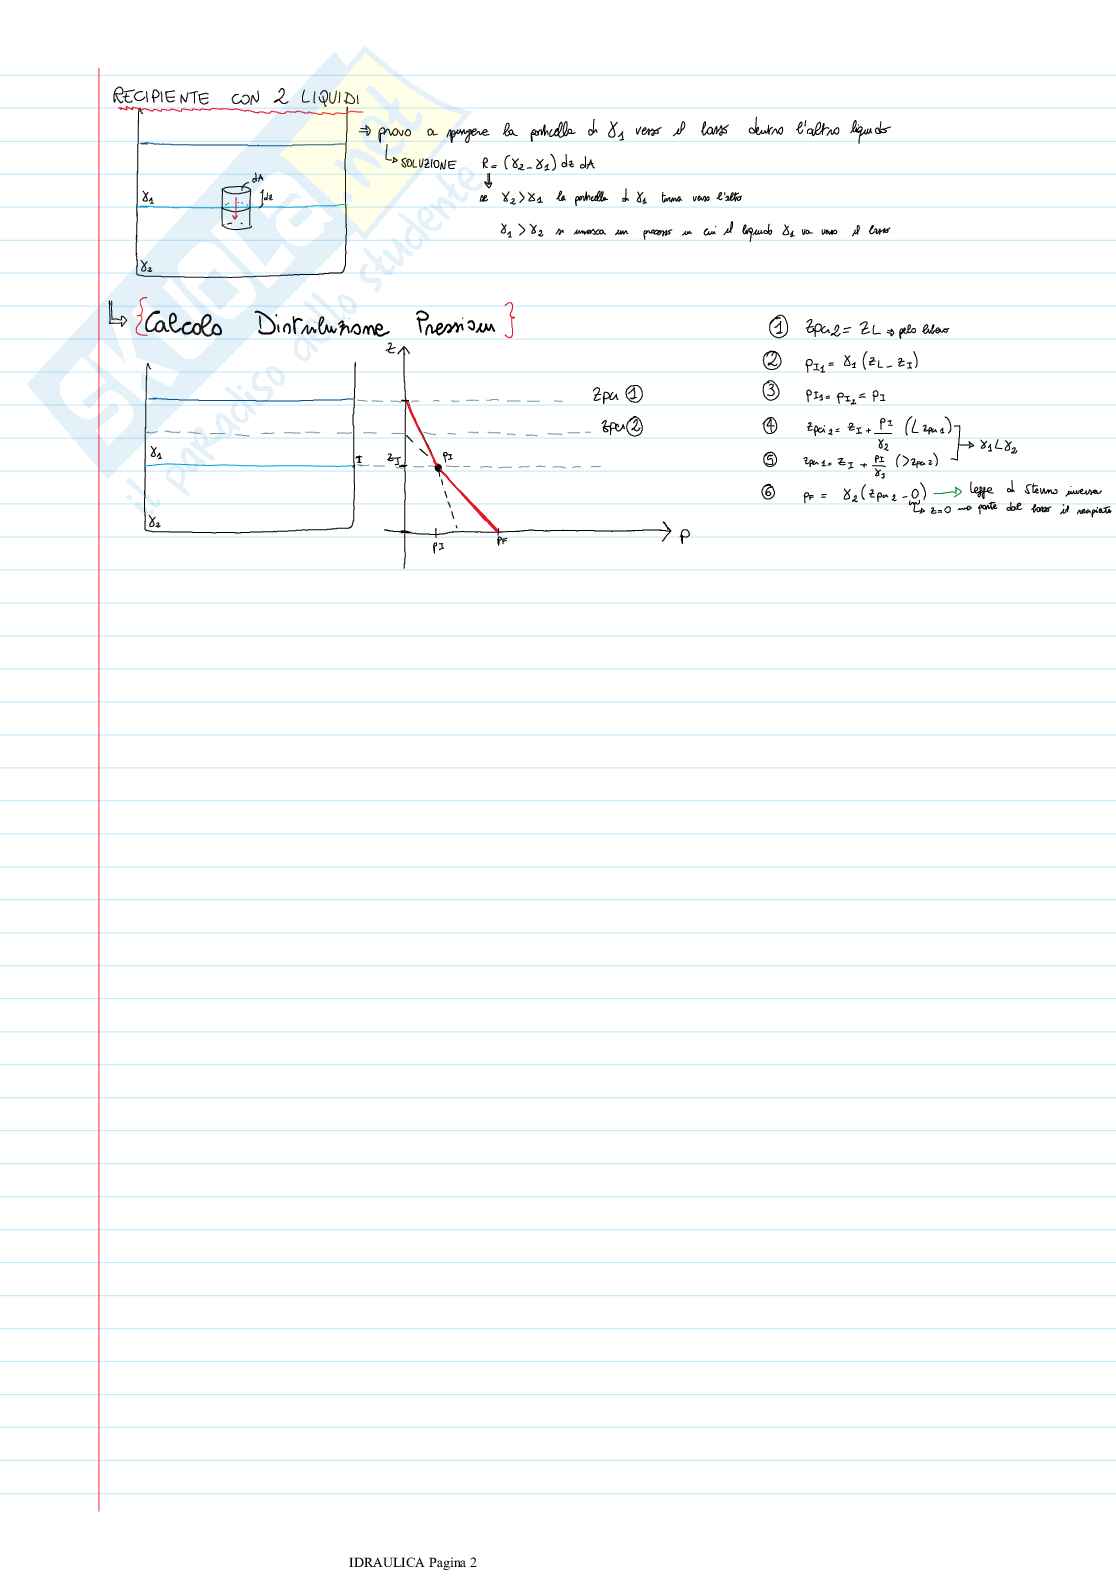 RECIPIENTE CON 2 LIQUIDI
⇒ provo a spingere la particella di γ1 verso il basso dentro l'altro liquido
↳ SOLUZIONE R = (γ2 - γ1) dz dA
se γ2 > γ1 la particella di γ1 torna verso l'alto
γ1 > γ2 si innesca un processo in cui il liquido γ1 va verso il basso
dA
dz
γ1
γ2
{Calcolo Distribuzione Pressioni}
z
zpci ①
zpci ②
γ1
I
zI
pI
γ2
pI
pF
p
① zpci2 = zL ⇒ pelo libero
② pI1 = γ1 (zL - zI)
③ pI1 = pI2 = pI
④ zpci2 = zI + pI/γ2 (L zpci1)
→ γ1 L γ2
⑤ zpci1 = zI + pI/γ1 (> zpci2)
⑥ pF = γ2 (zpci2 - 0) → legge di Stevino inversa
↳ z=0 → parte dal basso il recipiente
SKUOLA.net
il paradiso dello studente
IDRAULICA Pagina 2